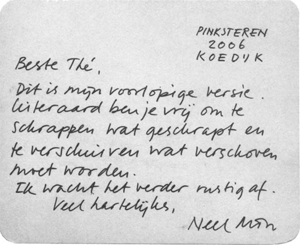 PINKSTEREN
2006
KOEDIJK
Beste Thé,
Dit is mijn voorlopige versie.
Uiteraard ben je vrij om te
schrappen wat geschrapt en
te verschuiven wat verschoven
moet worden.
Ik wacht het verder rustig af.
Veel hartelijks,
Neel